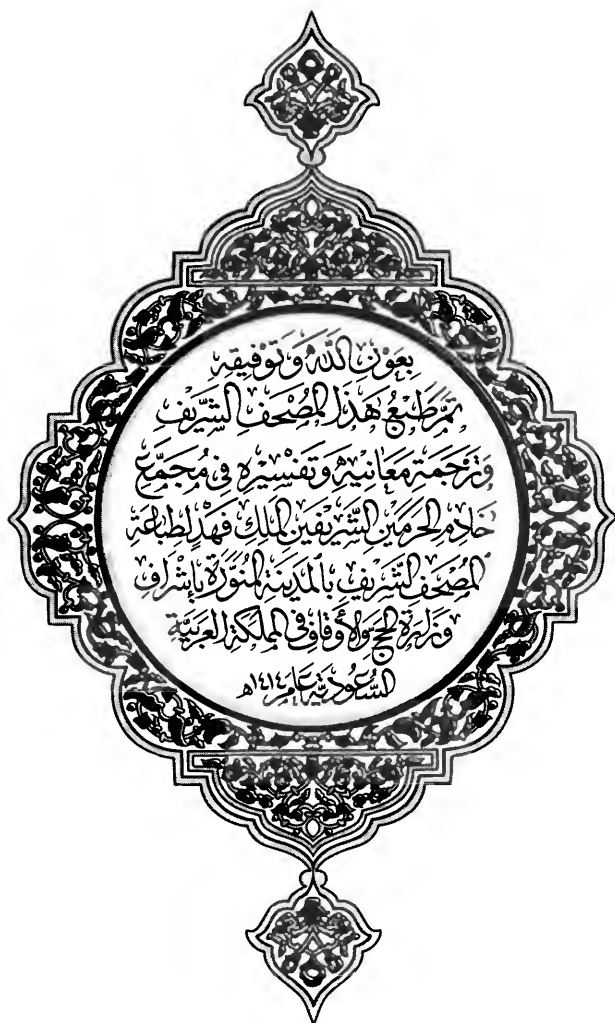 بِعَوْنِ اللَّهِ وَتَوْفِيقِهِ
تَمَّ طَبْعُ هَذَا الْمُصْحَفِ الشَّرِيفِ
وَتَرْجَمَةِ مَعَانِيهِ وَتَفْسِيرِهِ فِي مُجَمَّعِ
خَادِمِ الْحَرَمَيْنِ الشَّرِيفَيْنِ الْمَلِكِ فَهْد لِطِبَاعَةِ
الْمُصْحَفِ الشَّرِيفِ بِالْمَدِينَةِ الْمُنَوَّرَةِ بِإِشْرَافِ
وَزَارَةِ الْحَجِّ وَالْأَوْقَافِ فِي الْمَمْلَكَةِ الْعَرَبِيَّةِ
السُّعُودِيَّةِ عَام ١٤١٤هـ